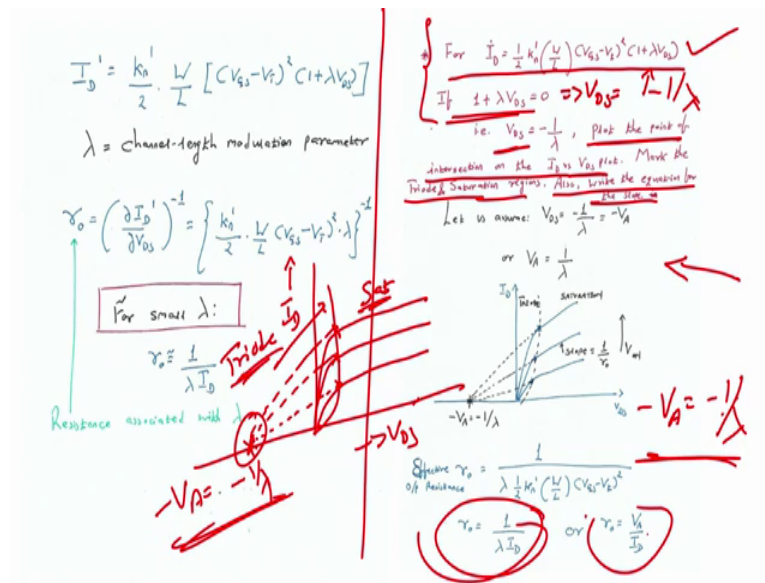 I_D' = k_n'/2 · W/L [(V_GS-V_T)²(1+λV_DS)]
λ = channel-length modulation parameter
r_o = (∂I_D'/∂V_DS)^-1 = {k_n'/2 · W/L (V_GS-V_T)² · λ}^-1
For small λ:
r_o ≅ 1/(λI_D)
Resistance associated with λ
I_D
Sat
Triode
→V_DS
-V_A = -1/λ
* For I_D = 1/2 k_n'(W/L)(V_GS-V_t)²(1+λV_DS)
If 1+λV_DS=0 => V_DS = -1/λ
i.e. V_DS = -1/λ, plot the point of
intersection on the I_D vs V_DS plot. Mark the
Triode & Saturation regions. Also, write the equation for
the slope
Let us assume: V_DS = -1/λ = -V_A
or V_A = 1/λ
I_D
TRIODE
SATURATION
SLOPE = 1/r_o
V_DS
-V_A = -1/λ
-V_A = -1/λ
Effective r_o = 1/(λ 1/2 k_n'(W/L)(V_GS-V_t)²)
O/P Resistance
r_o = 1/(λI_D) or r_o = V_A/I_D